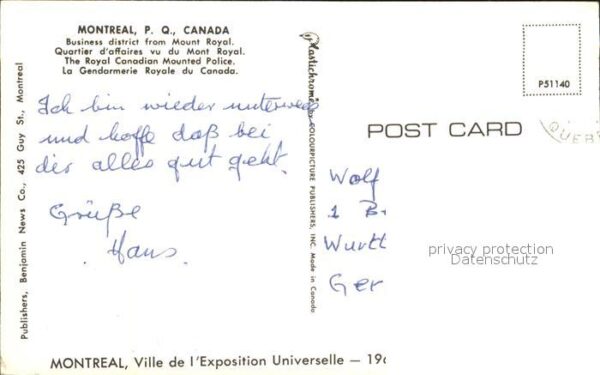 MONTREAL, P. Q., CANADA
Business district from Mount Royal.
Quartier d'affaires vu du Mont Royal.
The Royal Canadian Mounted Police.
La Gendarmerie Royale du Canada.
Publishers, Benjamin News Co., 425 Guy St., Montreal
Ich bin wieder unterwegs
und hoffe daß bei
dir alles gut geht.
Grüße
Hans
Plastichrome
by COLOURPICTURE PUBLISHERS, INC. Made in Canada
P51140
POST CARD
QUEB
Wolf
1 B
Wurtt
Ger
privacy protection
Datenschutz
MONTREAL, Ville de l'Exposition Universelle — 19